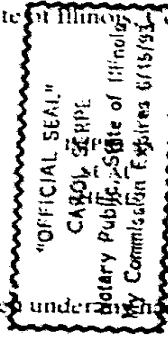 te of Illinois,
"OFFICIAL SEAL"
CAROL
Notary Public, State of Illinois
My Commission Expires 6/15/93
under